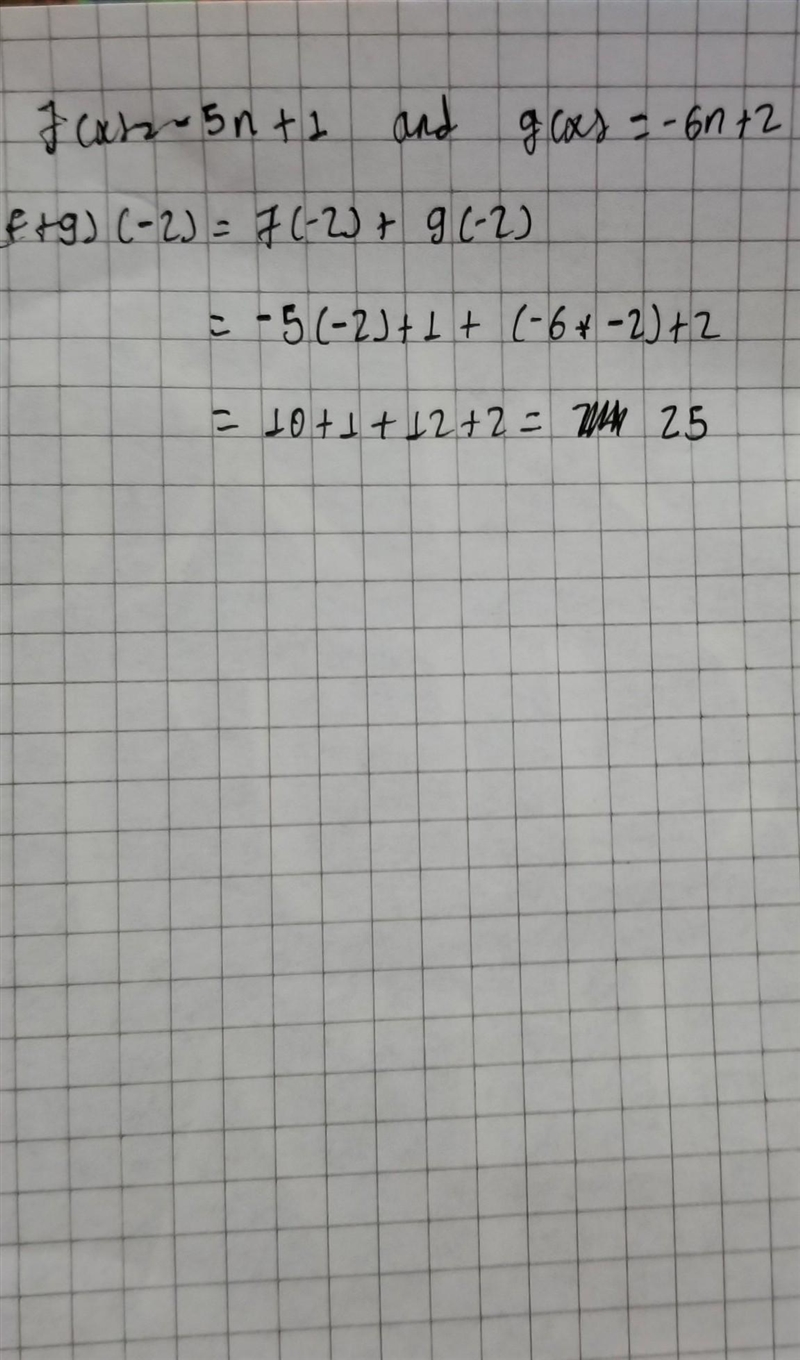 f(x) = -5x + 1 and g(x) = -6x + 2
f+g) (-2) = f(-2) + g(-2)
= -5(-2)+1 + (-6 * -2)+2
= 10+1+12+2 = 25